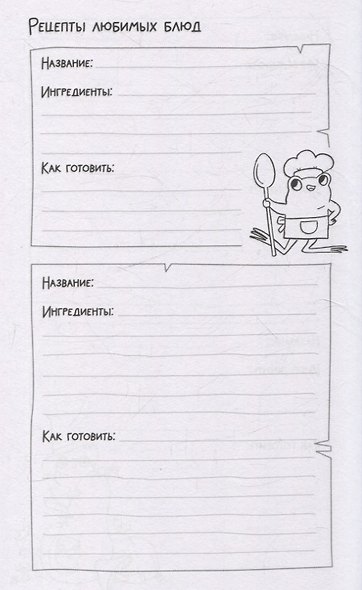 Рецепты любимых блюд
Название:
Ингредиенты:
Как готовить:
Название:
Ингредиенты:
Как готовить: